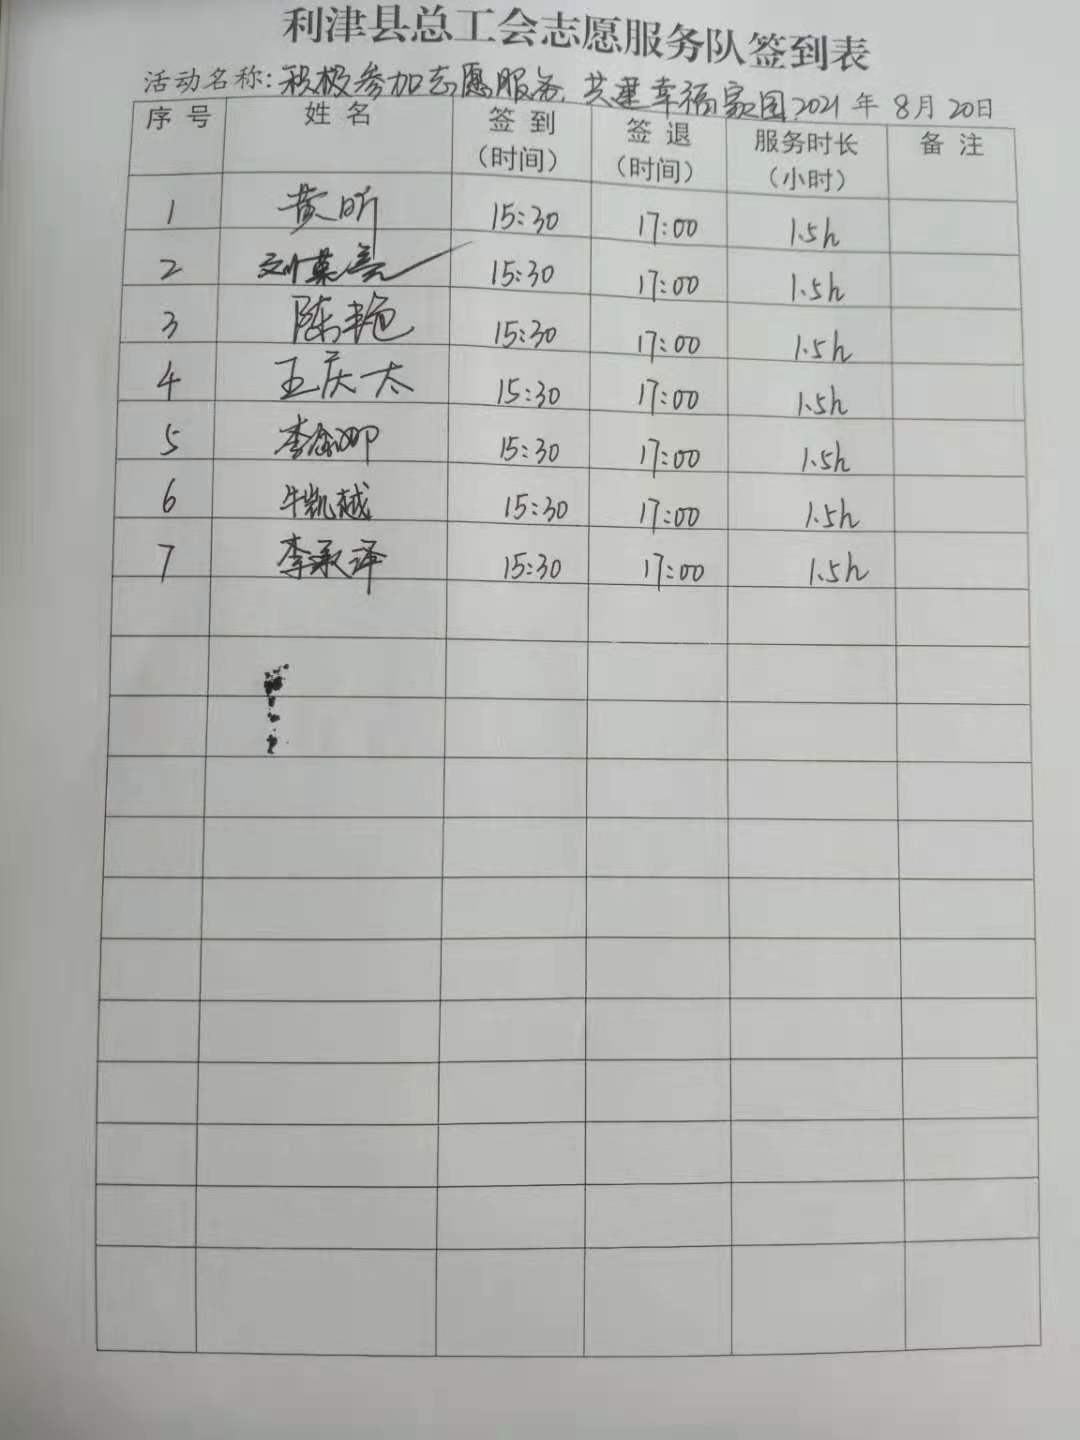 利津县总工会志愿服务队签到表
活动名称:积极参加志愿服务,共建幸福家园 2021年 8月 20日
序号 姓名 签到(时间) 签退(时间) 服务时长(小时) 备注
1 黄昕 15:30 17:00 1.5h
2 15:30 17:00 1.5h
3 陈艳 15:30 17:00 1.5h
4 王庆太 15:30 17:00 1.5h
5 李 15:30 17:00 1.5h
6 牛凯越 15:30 17:00 1.5h
7 李承泽 15:30 17:00 1.5h